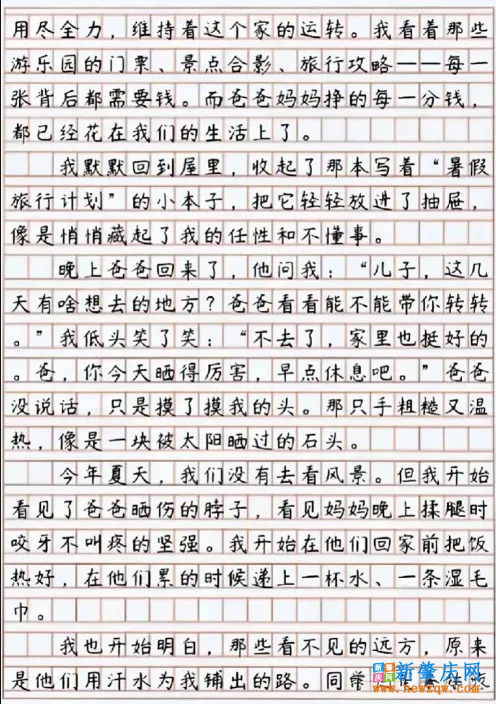 用尽全力，维持着这个家的运转。我看着那些
游乐园的门票、景点合影、旅行攻略——每一
张背后都需要钱。而爸爸妈妈挣的每一分钱，
都已经花在我们的生活上了。
我默默回到屋里，收起了那本写着“暑假
旅行计划”的小本子，把它轻轻放进了抽屉，
像是悄悄藏起了我的任性和不懂事。
晚上爸爸回来了，他问我：“儿子，这几
天有啥想去的地方？爸爸看看能不能带你转转
。”我低头笑了笑：“不去了，家里也挺好的
。爸，你今天晒得厉害，早点休息吧。”爸爸
没说话，只是摸了摸我的头。那只手粗糙又温
热，像是一块被太阳晒过的石头。
今年夏天，我们没有去看风景。但我开始
看见了爸爸晒伤的脖子，看见妈妈晚上揉腿时
咬牙不叫疼的坚强。我开始在他们回家前把饭
热好，在他们累的时候递上一杯水、一条湿毛
巾。
我也开始明白，那些看不见的远方，原来
是他们用汗水为我铺出的路。同
新肇庆网
www.newzqw.com